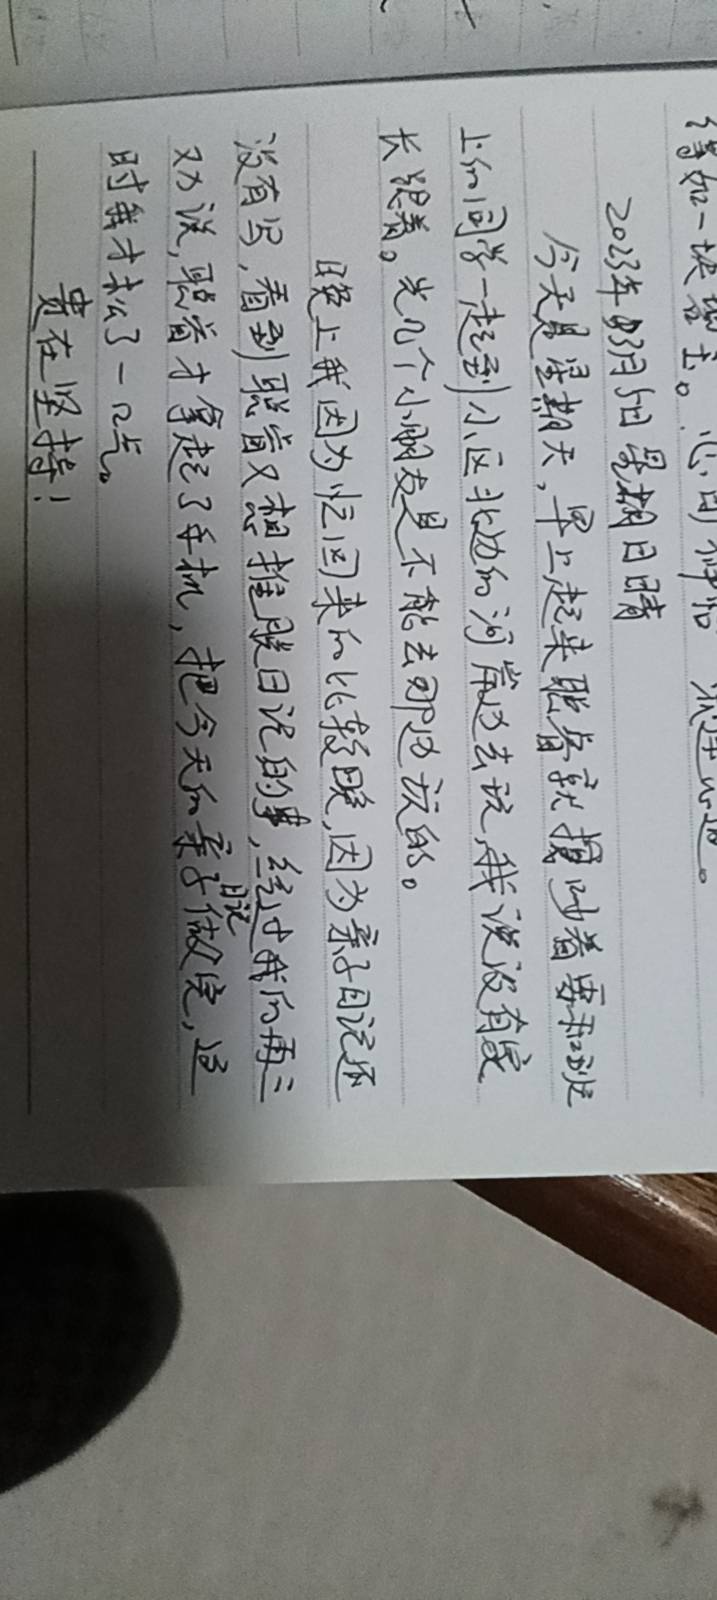 如一块
2023年3月5日 星期日 晴
今天是星期天,早上起来聪睿就摸时着要和班
上的同学一起到小区北边的河岸边去玩,我说没有家
长跟着。光几个小朋友是不能去那边玩的。
晚上我因为忙回来的比较晚,因为亲子日记还
没有写,看到聪睿又想推脱日记的事,经过我的再三
劝说,聪睿才拿起了手机,把今天的亲子日记做完,这
时我才松了一口气。
贵在坚持!